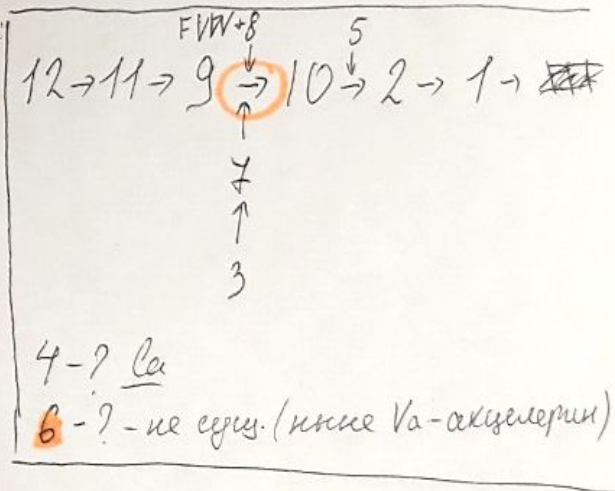 FVW+8 5
12→11→9→10→2→1→
7
↑
3
4-? Ca
6-? - не сущ. (ныне Va-акцелерин)